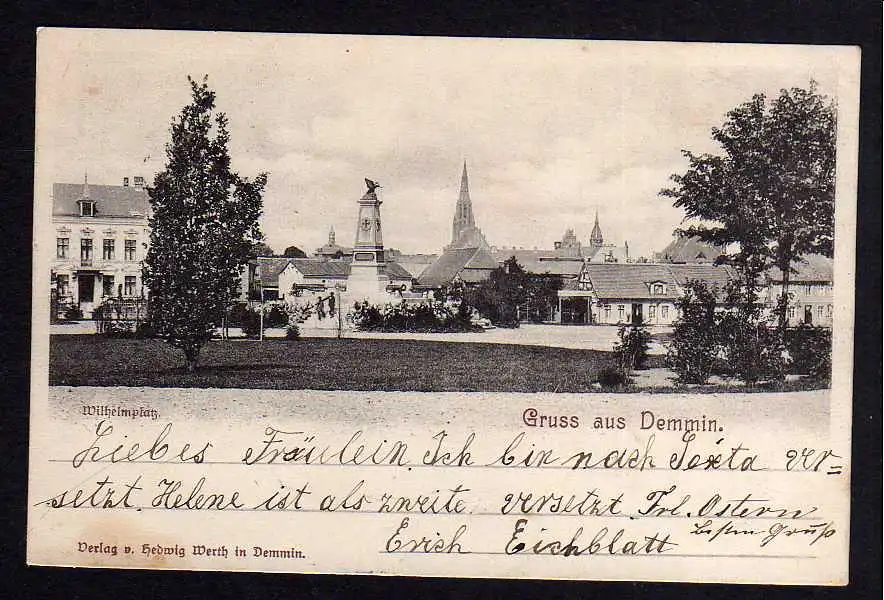 Wilhelmplatz.
Gruss aus Demmin.
Liebes Fräulein. Ich bin nach Sexta ver=
setzt. Helene ist als zweite versetzt. Frl. Ostern
besten Gruß
Erich Eichblatt
Verlag v. Hedwig Werth in Demmin.